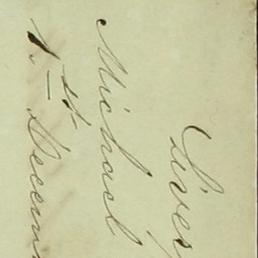 Liver
Michael
1.st Decem